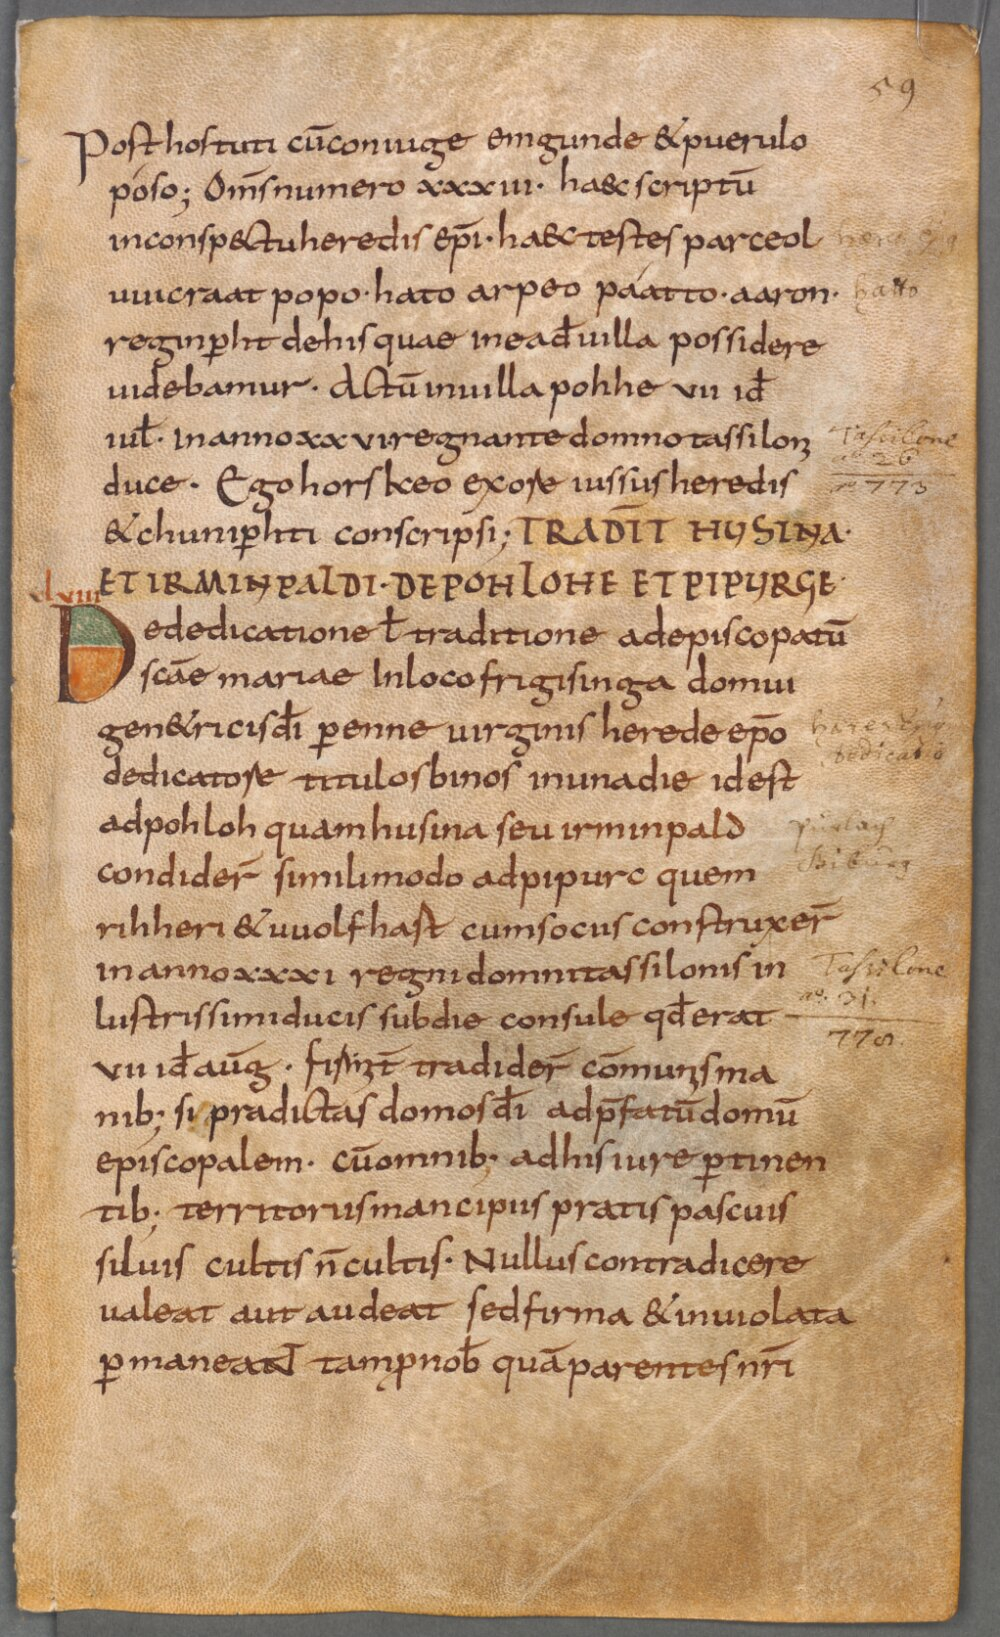 59
Posthostuti cū coniuge emgunde & puerulo
póso; Om̄s numero xxxvii· haec scriptū
in conspectu heredis ep̄i· haec testes parceol
uuicraat popo· hato arpeo páatto· aaron·
reginꝑht de his quae in ead̄ uilla possidere
uidebamur· Actū in uilla pohhe vii id̄
iul̄· in anno xxvi regnante domno tassilone
duce· Ego horskeo exose iussus heredis
& chuniꝑhti conscripsi; TRADIT̄ HUSINA·
ET IRMINPALDI· DE POHLOHE ET PIPURGE·
lviii
Dededicatione t̄ traditione ad episcopatū
scāe mariae In loco frigisinga domui
genetricis dī ꝑenne uirginis herede ep̄o
dedicatose titulos binos in una die id est
ad pohloh quam husina seu irminpald
condider̄ simili modo ad pipurc quem
rihheri & uuolfhast cum sociis construxer̄
in anno xxxi regni domni tassilonis in
lustrissimi ducis sub die consule qd̄ erat
vii id̄ aūg·
tradider̄
nib; si pradictas domos dī ad p̄fatū domū
episcopalem· cū omnib; ad his iure ꝑtinen
tib; territoriis mancipiis pratis pascuis
siluis cultis n̄ cultis· Nullus contradicere
ualeat aut audeat sed firma & inuiolata
ꝑmaneant tam ꝓ nob̄ quā parentes nr̄i
hatto
Tassilone
ao. 26
773
dedicatio
Tassilone
ao. 31.
778.